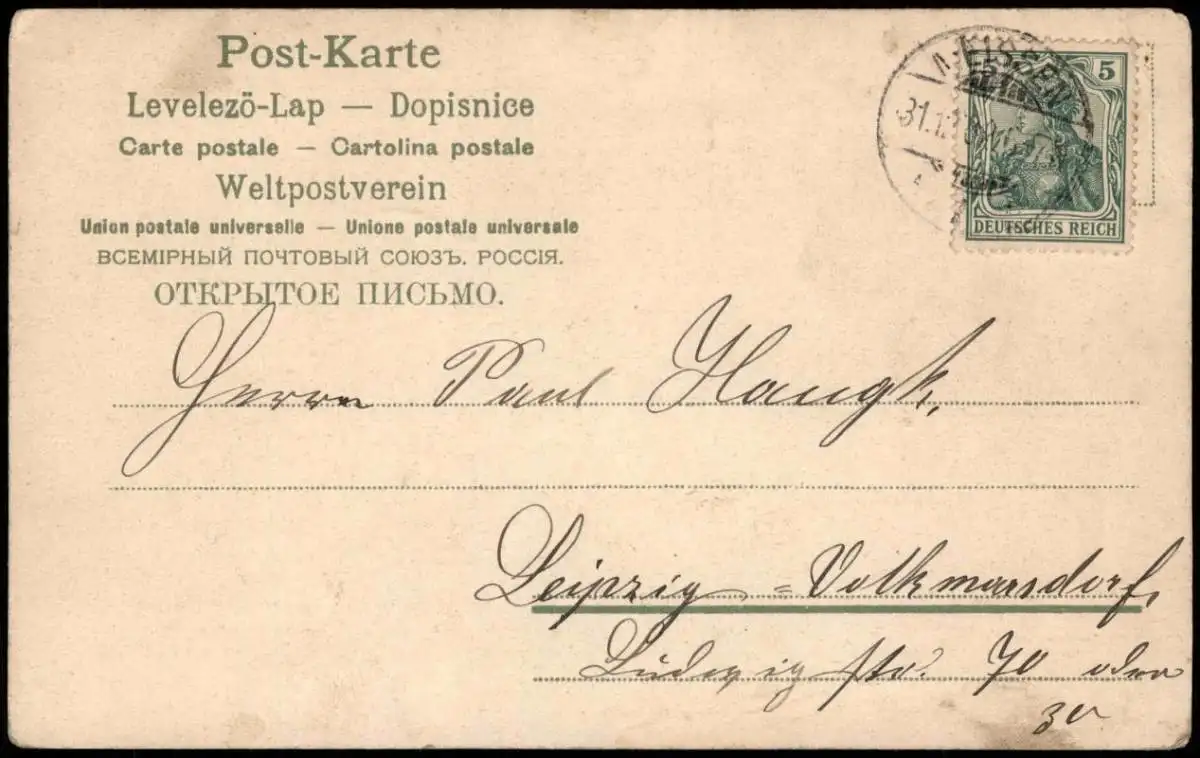 Post-Karte
Levelezö-Lap — Dopisnice
Carte postale — Cartolina postale
Weltpostverein
Union postale universelle — Unione postale universale
ВСЕМІРНЫЙ ПОЧТОВЫЙ СОЮЗЪ. РОССІЯ.
ОТКРЫТОЕ ПИСЬМО.
MEISSEN
31.12
5
DEUTSCHES REICH
Herrn Paul Haugk,
Leipzig = Volkmarsdorf,
Ludwig str. 70 oder